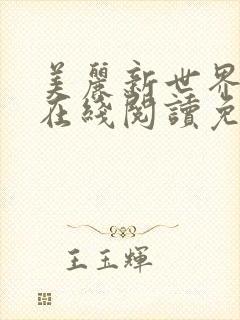 美麗新世界
在綫閱讀免
王玉輝